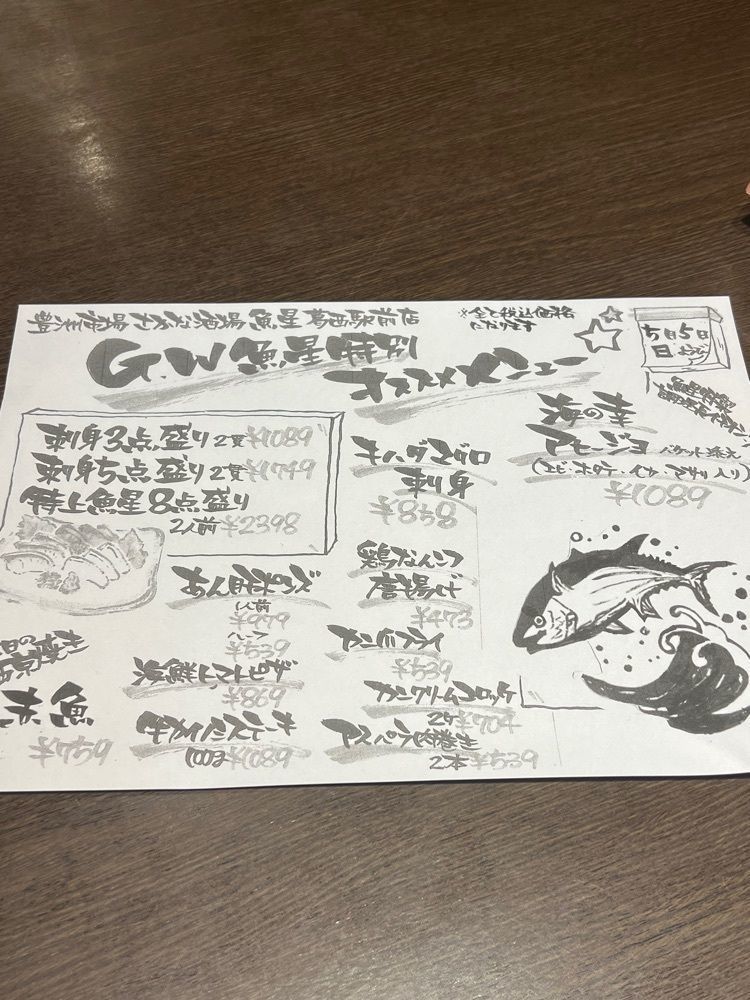 豊洲市場 さかな酒場 魚星 葛西駅前店
※全て税込価格
になります
5月5日
日
G.W 魚星特別
オススメメニュー
刺身3点盛り 2貫 ¥1089
刺身5点盛り 2貫 ¥1749
特上魚星8点盛り
2人前 ¥2398
キハダマグロ
刺身
¥858
海の幸
アヒージョ バケット添え
(エビ・ホタテ・イカ・アサリ入り)
¥1089
あん肝ポン酢
1人前
¥979
ハーフ
¥539
海鮮トマトピザ
¥869
牛サイコロステーキ
100g ¥1089
鶏なんこつ
唐揚げ
¥473
¥539
カニクリームコロッケ
2ケ ¥704
アスパラ肉巻き
2本 ¥539
赤魚
¥759